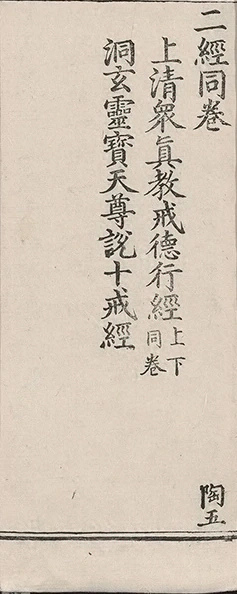 二經同卷
上清衆眞教戒德行經上下同卷
洞玄靈寶天尊說十戒經
陶五